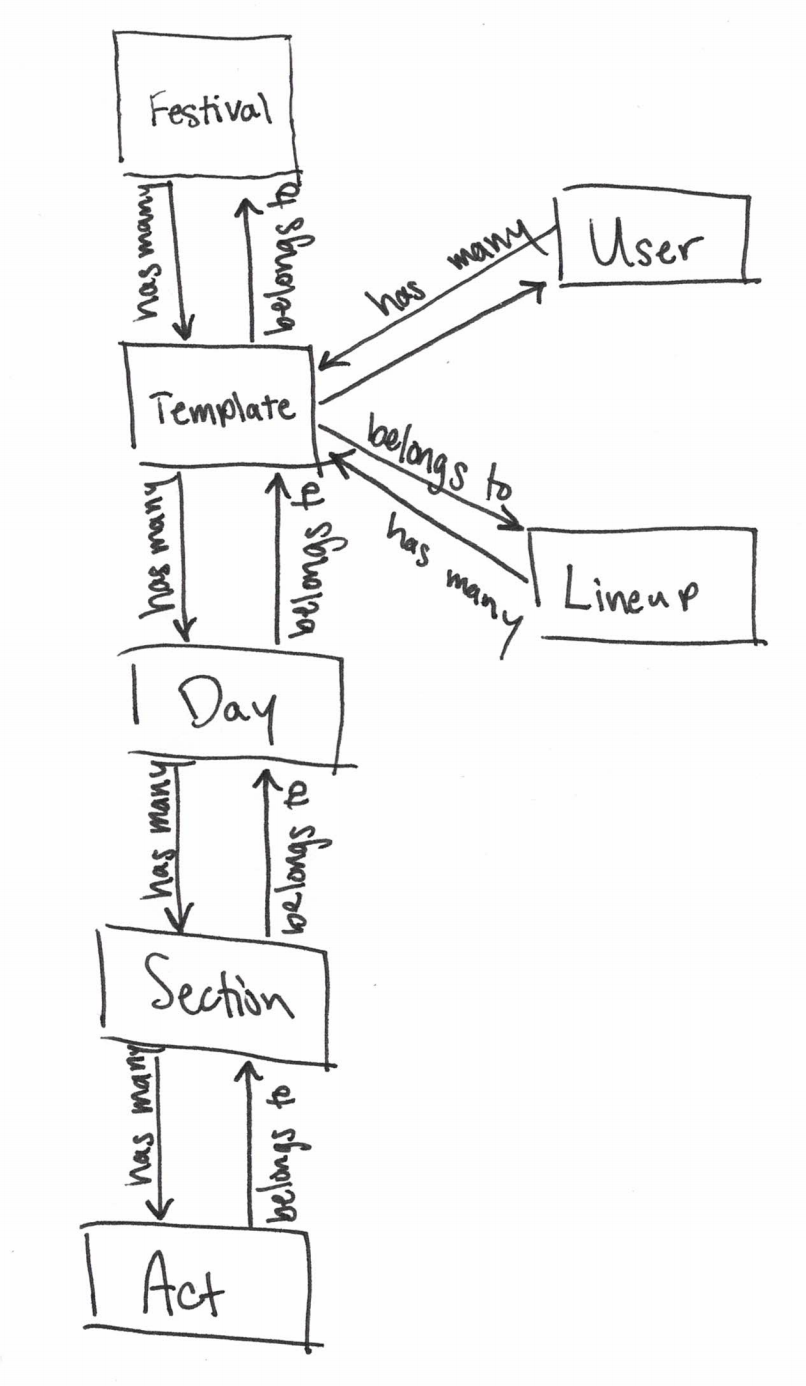 Festival
has many
belongs to
User
has many
Template
belongs to
has many
Lineup
has many
belongs to
Day
has many
belongs to
Section
has many
belongs to
Act